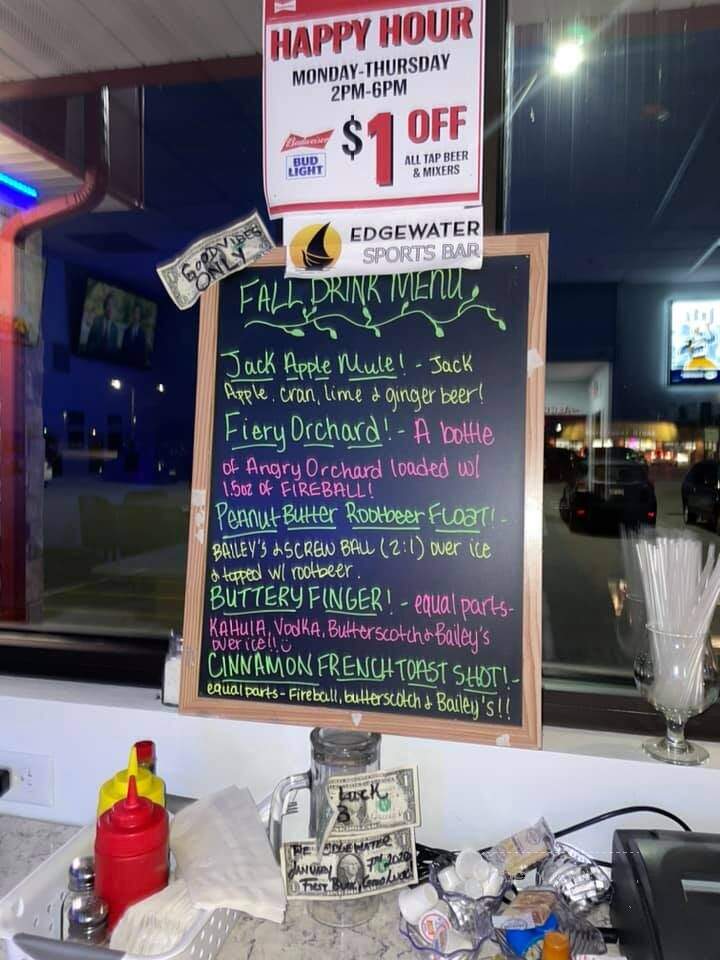 HAPPY HOUR
MONDAY-THURSDAY
2PM-6PM
Budweiser
BUD
LIGHT
$1 OFF
ALL TAP BEER
& MIXERS
EDGEWATER
SPORTS BAR
GOOD VIBES
ONLY
FALL DRINK MENU
Jack Apple Mule! - Jack
Apple, cran, lime & ginger beer!
Fiery Orchard! - A bottle
of Angry Orchard loaded w/
1.5oz of FIREBALL!
Peanut Butter Rootbeer Float! -
BAILEY'S & SCREW BALL (2:1) over ice
& topped w/ rootbeer.
BUTTERY FINGER! - equal parts-
KAHULA, Vodka, Butterscotch & Bailey's
over ice!!
CINNAMON FRENCH TOAST SHOT! -
equal parts - Fireball, butterscotch & Bailey's!!
Luck
THE EDGEWATER
JANUARY 7th 2020
First Buck, Good Luck!